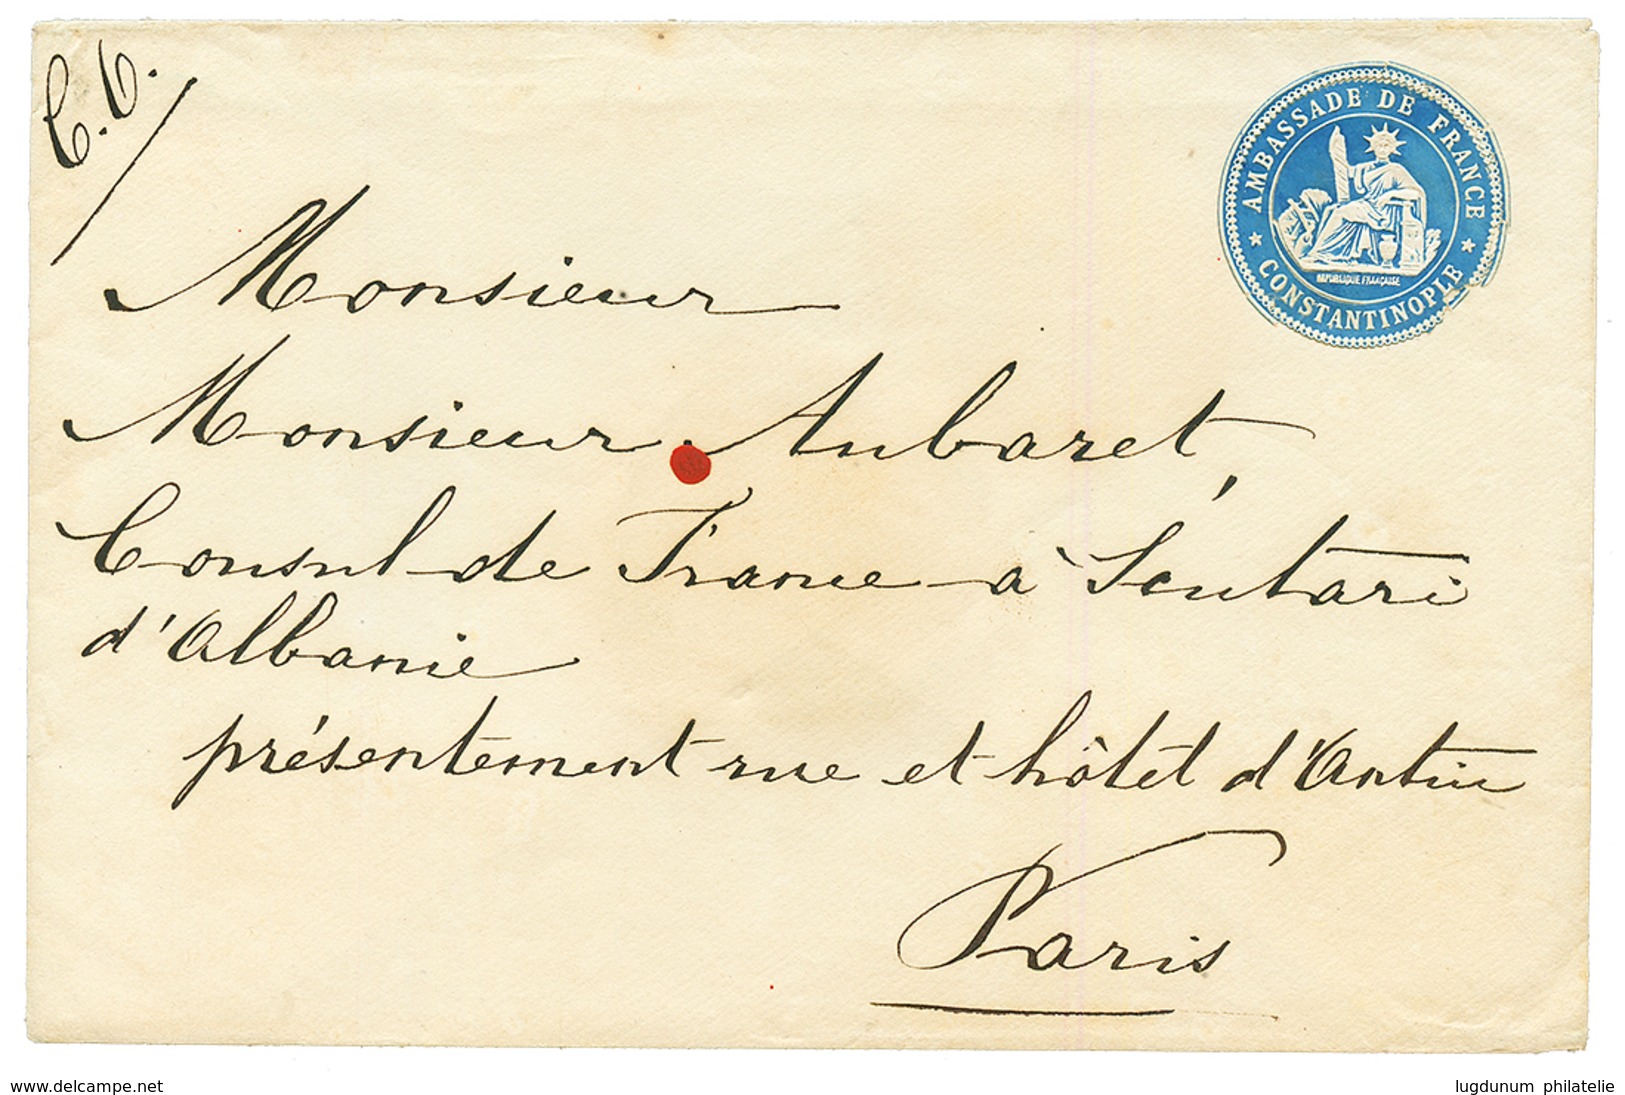 C. C.
★ AMBASSADE DE FRANCE ★
CONSTANTINOPLE
REPUBLIQUE FRANÇAISE
Monsieur
Monsieur Aubaret,
Consul de France à Scutari
d'Albanie
présentement rue et hôtel d'Antin
Paris
www.delcampe.net
lugdunum philatelie